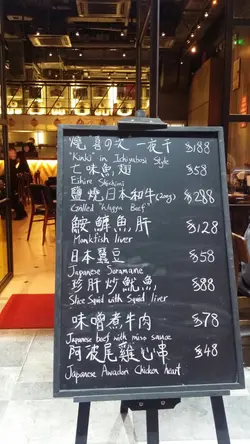 燒喜の次 一夜干 $188
"Kinki" in Ichiyaboshi Style
亡味魚翅 $58
Eihire Shichimi
鹽燒日本和牛(200g) $288
Grilled Wagyu Beef
鮟鱇魚肝 $128
Monkfish liver
日本蠶豆 $58
Japanese Soramame
珍肝炒魷魚 $88
Slice Squid with Squid liver
味噌煮牛肉 $78
Japanese beef with miso sauce
阿波尾雞心串 $48
Japanese Awaodori Chicken heart